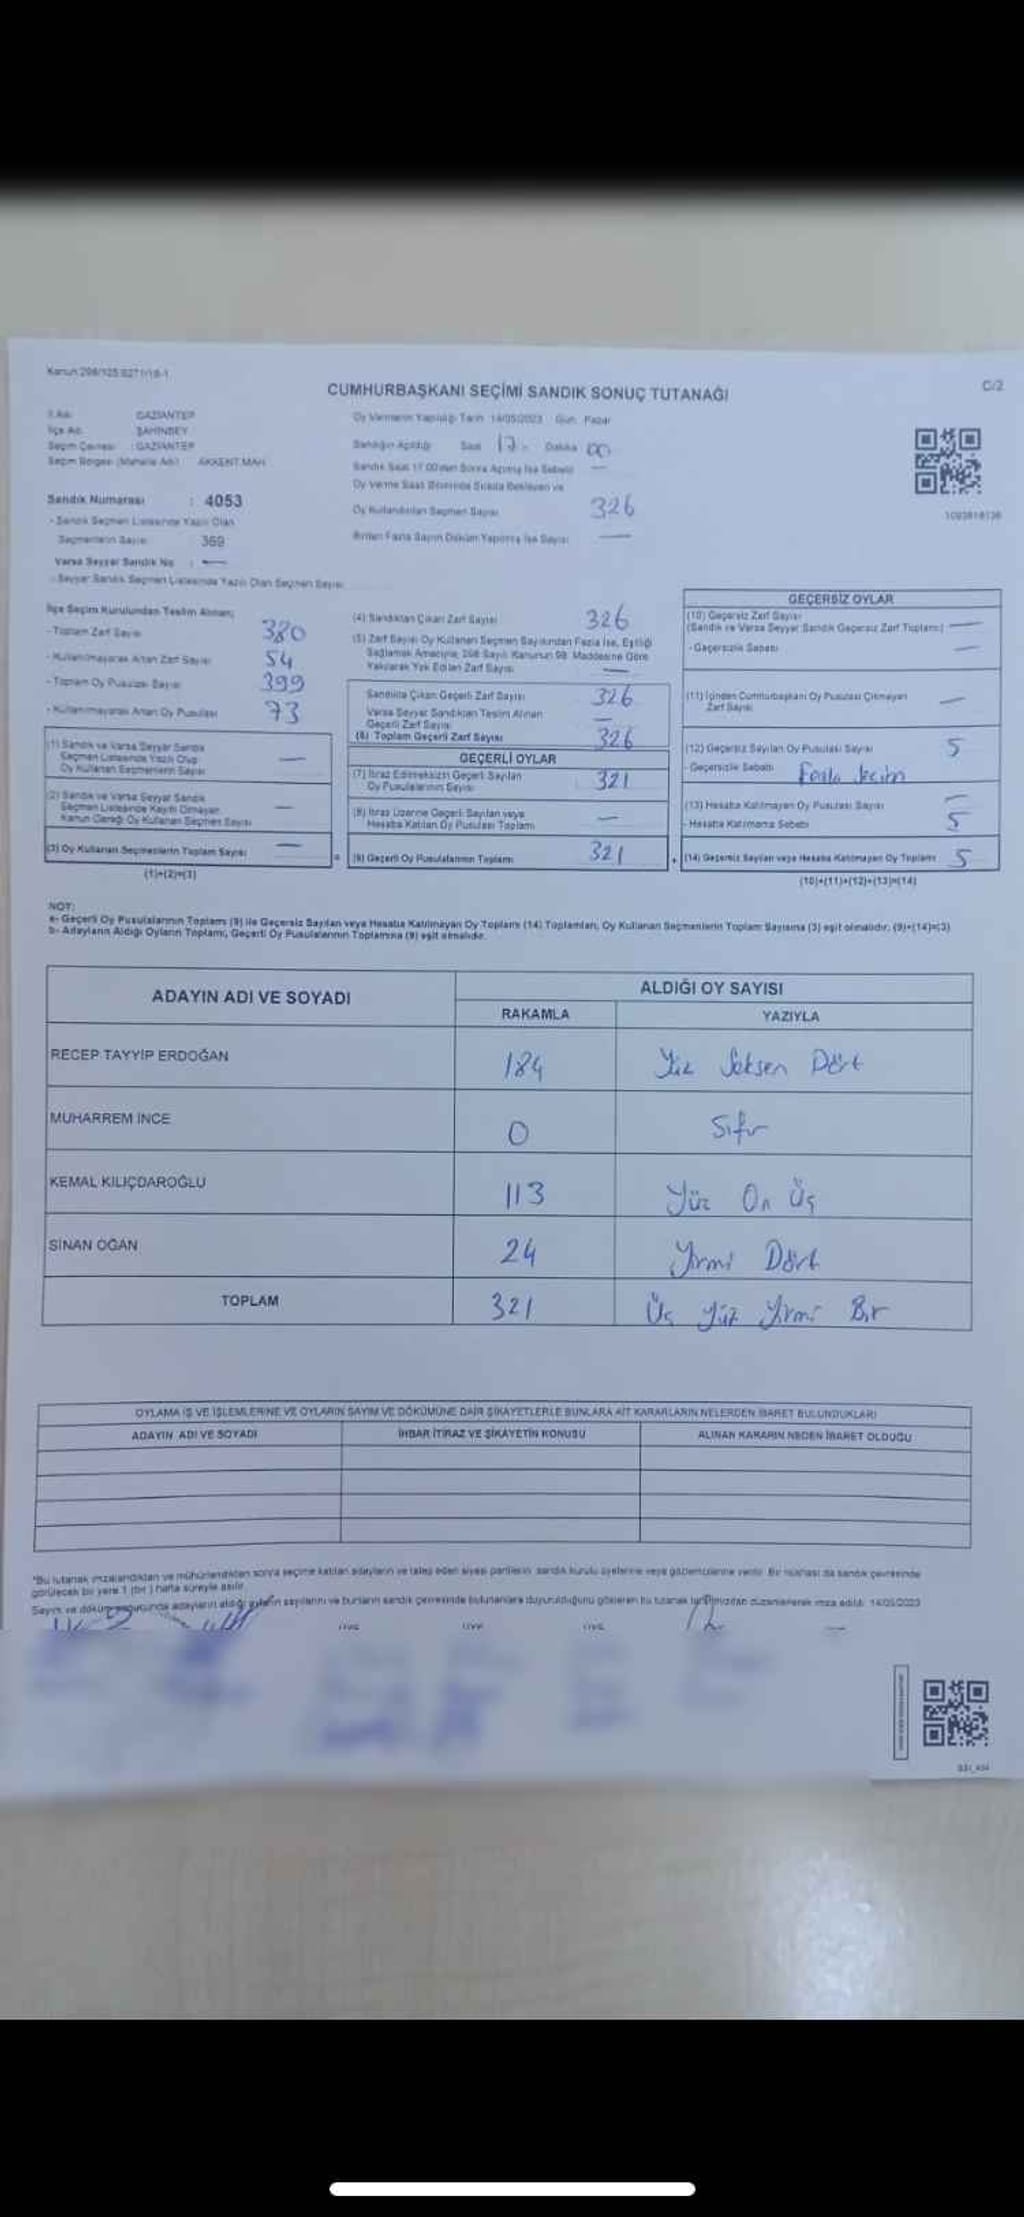 Kanun 298/105
C/2
CUMHURBAŞKANI SEÇİMİ SANDIK SONUÇ TUTANAĞI
İl Adı : GAZİANTEP
İlçe Adı : ŞAHİNBEY
Seçim Çevresi : GAZİANTEP
Seçim Bölgesi (Mahalle Adı) : AKKENT MAH.
Sandık Numarası : 4053
- Sandık Seçmen Listesinde Yazılı Olan
Seçmenlerin Sayısı 369
Varsa Seyyar Sandık No : —
- Seyyar Sandık Seçmen Listesinde Yazılı Olan Seçmen Sayısı
Oy Vermenin Yapıldığı Tarih 14/05/2023 Gün Pazar
Sandığın Açıldığı Saat 17 - Dakika 00
Sandık Saat 17.00'den Sonra Açılmış İse Sebebi —
Oy Verme Saati Bitiminde Sırada Bekleyen ve
Oy Kullandırılan Seçmen Sayısı 326
Birden Fazla Sayım Döküm Yapılmış İse Sayısı —
İlçe Seçim Kurulundan Teslim Alınan;
- Toplam Zarf Sayısı 380
- Kullanılmayarak Artan Zarf Sayısı 54
- Toplam Oy Pusulası Sayısı 399
- Kullanılmayarak Artan Oy Pusulası 73
(1) Sandık ve Varsa Seyyar Sandık
Seçmen Listesinde Yazılı Olup
Oy Kullanan Seçmenlerin Sayısı —
(2) Sandık ve Varsa Seyyar Sandık
Seçmen Listesinde Kayıtlı Olmayan
Kanun Gereği Oy Kullanan Seçmen Sayısı —
(3) Oy Kullanan Seçmenlerin Toplam Sayısı —
(1)+(2)=(3)
(4) Sandıktan Çıkan Zarf Sayısı 326
(5) Zarf Sayısı Oy Kullanan Seçmen Sayısından Fazla İse, Eşitliği
Sağlamak Amacıyla, 298 Sayılı Kanunun 98. Maddesine Göre
Yakılarak Yok Edilen Zarf Sayısı —
Sandıkta Çıkan Geçerli Zarf Sayısı 326
Varsa Seyyar Sandıktan Teslim Alınan
Geçerli Zarf Sayısı —
(6) Toplam Geçerli Zarf Sayısı 326
GEÇERLİ OYLAR
(7) İtiraz Edilmeksizin Geçerli Sayılan
Oy Pusulalarının Sayısı 321
(8) İtiraz Üzerine Geçerli Sayılan veya
Hesaba Katılan Oy Pusulası Toplamı —
(9) Geçerli Oy Pusulalarının Toplamı 321
GEÇERSİZ OYLAR
(10) Geçersiz Zarf Sayısı
(Sandık ve Varsa Seyyar Sandık Geçersiz Zarf Toplamı) —
- Geçersizlik Sebebi —
(11) İçinden Cumhurbaşkanı Oy Pusulası Çıkmayan
Zarf Sayısı —
(12) Geçersiz Sayılan Oy Pusulası Sayısı 5
- Geçersizlik Sebebi Fazla Seçim
(13) Hesaba Katılmayan Oy Pusulası Sayısı —
- Hesaba Katılmama Sebebi 5
(14) Geçersiz Sayılan veya Hesaba Katılmayan Oy Toplamı 5
(10)+(11)+(12)+(13)=(14)
NOT:
a- Geçerli Oy Pusulalarının Toplamı (9) ile Geçersiz Sayılan veya Hesaba Katılmayan Oy Toplamı (14) Toplamları, Oy Kullanan Seçmenlerin Toplam Sayısına (3) eşit olmalıdır. (9)+(14)=(3)
b- Adayların Aldığı Oyların Toplamı, Geçerli Oy Pusulalarının Toplamına (9) eşit olmalıdır.
ADAYIN ADI VE SOYADI
ALDIĞI OY SAYISI
RAKAMLA YAZIYLA
RECEP TAYYİP ERDOĞAN 184 Yüz Seksen Dört
MUHARREM İNCE 0 Sıfır
KEMAL KILIÇDAROĞLU 113 Yüz On Üç
SİNAN OĞAN 24 Yirmi Dört
TOPLAM 321 Üç Yüz Yirmi Bir
OYLAMA İŞ VE İŞLEMLERİNE VE OYLARIN SAYIM VE DÖKÜMÜNE DAİR ŞİKAYETLERLE BUNLARA AİT KARARLARIN NELERDEN İBARET BULUNDUKLARI
ADAYIN ADI VE SOYADI İHBAR İTİRAZ VE ŞİKAYETİN KONUSU ALINAN KARARIN NEDEN İBARET OLDUĞU
*Bu tutanak imzalandıktan ve mühürlendikten sonra seçime katılan adayların ve talep eden siyasi partilerin sandık kurulu üyelerine veya gözlemcilerine verilir. Bir nüshası da sandık çevresinde
görülecek bir yere 1 (bir) hafta süreyle asılır.
Sayım ve döküm sonucunda adayların aldığı oyların sayılarını ve bunların sandık çevresinde bulunanlara duyurulduğunu gösteren bu tutanak tarafımızdan düzenlenerek imza edildi. 14/05/2023